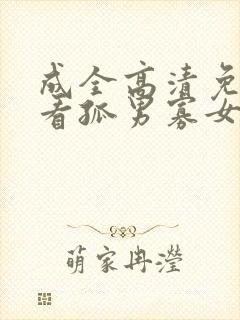 成全高清免
看孤男寡女
萌家冉瀅